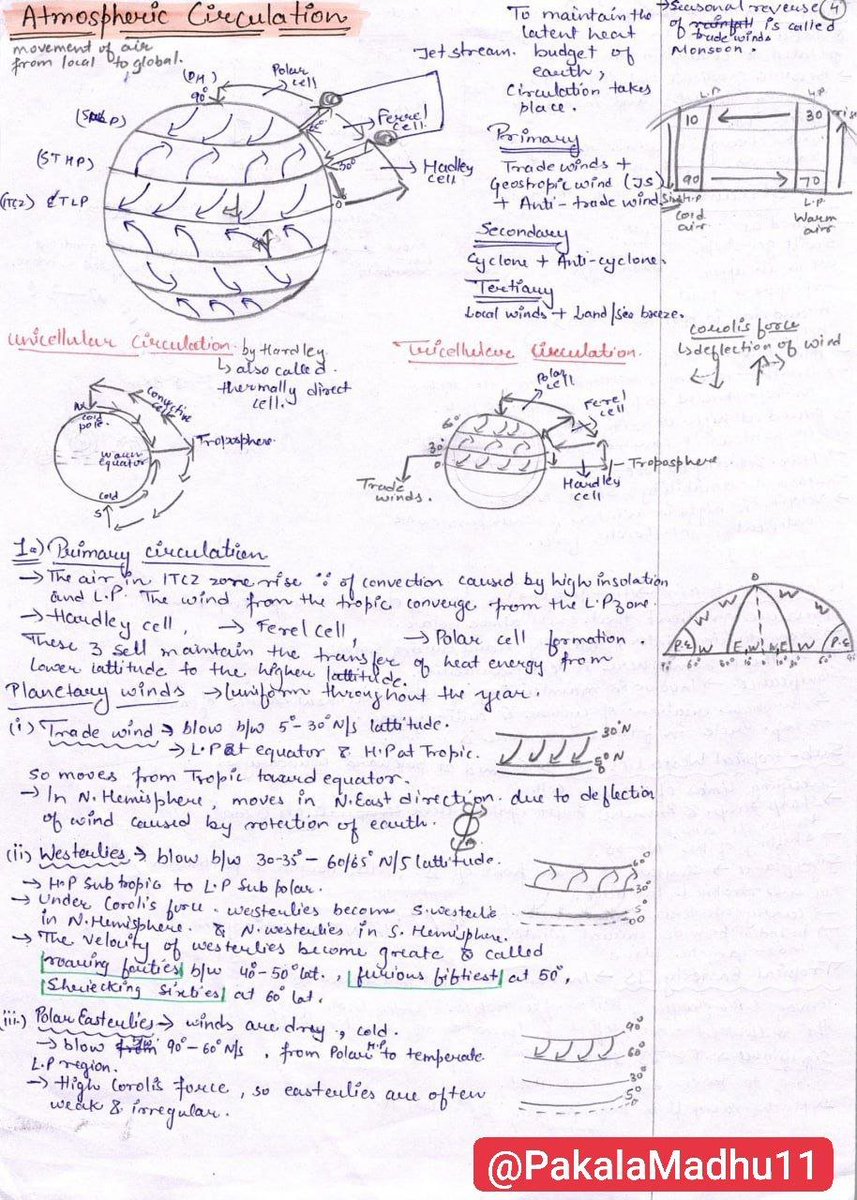 Atmospheric Circulation
movement of air
from local to global.
To maintain the
latent heat
budget of
earth,
Circulation takes
place.
→ Seasonal reverse
of rainfall is called
trade winds
Monsoon.
4
Jet stream.
(PH)
90°
Polar
cell
Ferrel
cell.
30°
Hadley
cell
0°
(STHP)
(ITCZ) ETLP
Primary
Trade winds +
Geostropic wind (JS)
+ Anti-trade winds
Secondary
Cyclone + Anti-cyclone.
Tertiary
Local winds + Land/sea breeze.
L.P
H.P
10
30
rise
90
70
Sink
H.P
L.P
Cold
air
Warm
air
Corolis force
↳ deflection of wind
Unicellular Circulation by Hardley
↳ also called
thermally direct
cell.
N
Cold
pole.
Convective
cell
Troposphere
warm
equator
cold
S
Tricellular Circulation.
Polar
cell
Ferel
cell
60
30
0
Troposphere
Trade
winds.
Hardley
cell
1.) Primary circulation
→ The air in ITCZ zone rise ∵ of convection caused by high insolation
and L.P. The wind from the tropic converge from the L.P zone
→ Hardley cell, → Ferel cell, → Polar cell formation.
These 3 sell maintain the transfer of heat energy from
lower lattitude to the higher lattitude.
0
W W W W
P.E W E.W E W P.E
90° 60° 30° 0 30° 60°
Planetary winds → Uniform throughout the year.
(i) Trade wind → blow b/w 5°-30° N/S lattitude.
→ L.P at equator & H.P at Tropic.
so moves from Tropic toward equator.
30°N
5°N
0
→ In N.Hemisphere, moves in N.East direction due to deflection
of wind caused by rotection of earth.
(ii) Westerlies → blow b/w 30-35° - 60/65° N/S lattitude.
→ H.P Subtropic to L.P Sub polar.
→ Under Corolis force. westerlies become S.westerlie
in N.Hemisphere. & N.westerlies in S. Hemisphere.
→ The velocity of westerlies become greate & called
roaring forties b/w 40°-50° lat., furious fifties at 50°,
Shriecking sixties at 60° lat.
60°
30°
5°
0°
(iii.) Polar Easterlies → winds are dry, cold.
→ blow from 90°-60° N/S, from Polar H.P to temperate
L.P region.
→ High Corolis force, so easterlies are often
weak & irregular.
90°
60°
30°
5°
0
@PakalaMadhu11